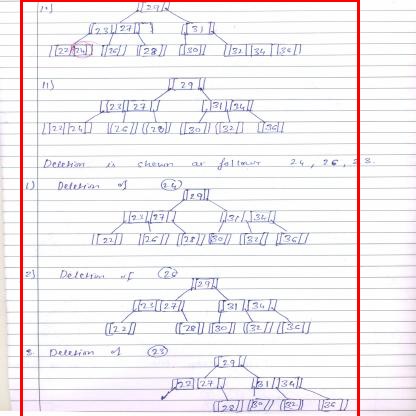 10) [29]
[23|27] [31]
[22|24] [26] [28] [30] [32|34|36]
11) [29]
[23|27] [31|34]
[22|24] [26] [28] [30] [32] [36]
Deletion is shown as follows 24, 26, 23.
1) Deletion of 24
[29]
[23|27] [31|34]
[22] [26] [28] [30] [32] [36]
2) Deletion of 26
[29]
[23|27] [31|34]
[22] [28] [30] [32] [36]
3. Deletion of 23
[29]
[22|27] [31|34]
[28] [30] [32] [36]